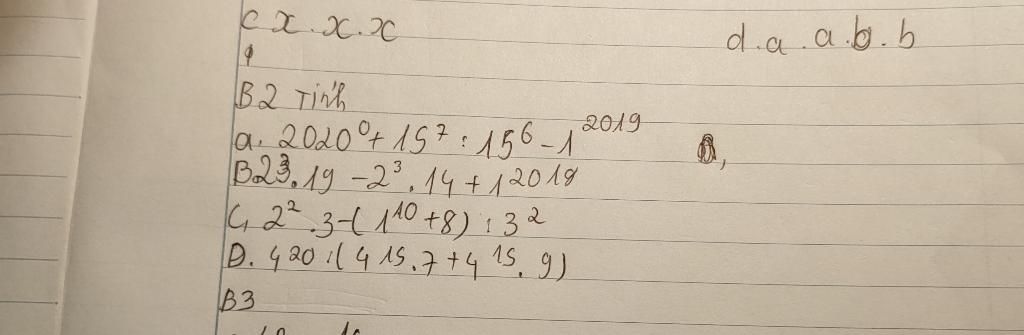 c x.x.x d.a.a.b.b
B2 Tính
a. 2020⁰ + 15⁷ : 15⁶ - 1²⁰¹⁹
B 2³.19 - 2³.14 + 1²⁰¹⁸
C, 2².3 - (1¹⁰ + 8) : 3²
D. 4²⁰ : (4¹⁵.7 + 4¹⁵.9)
B3